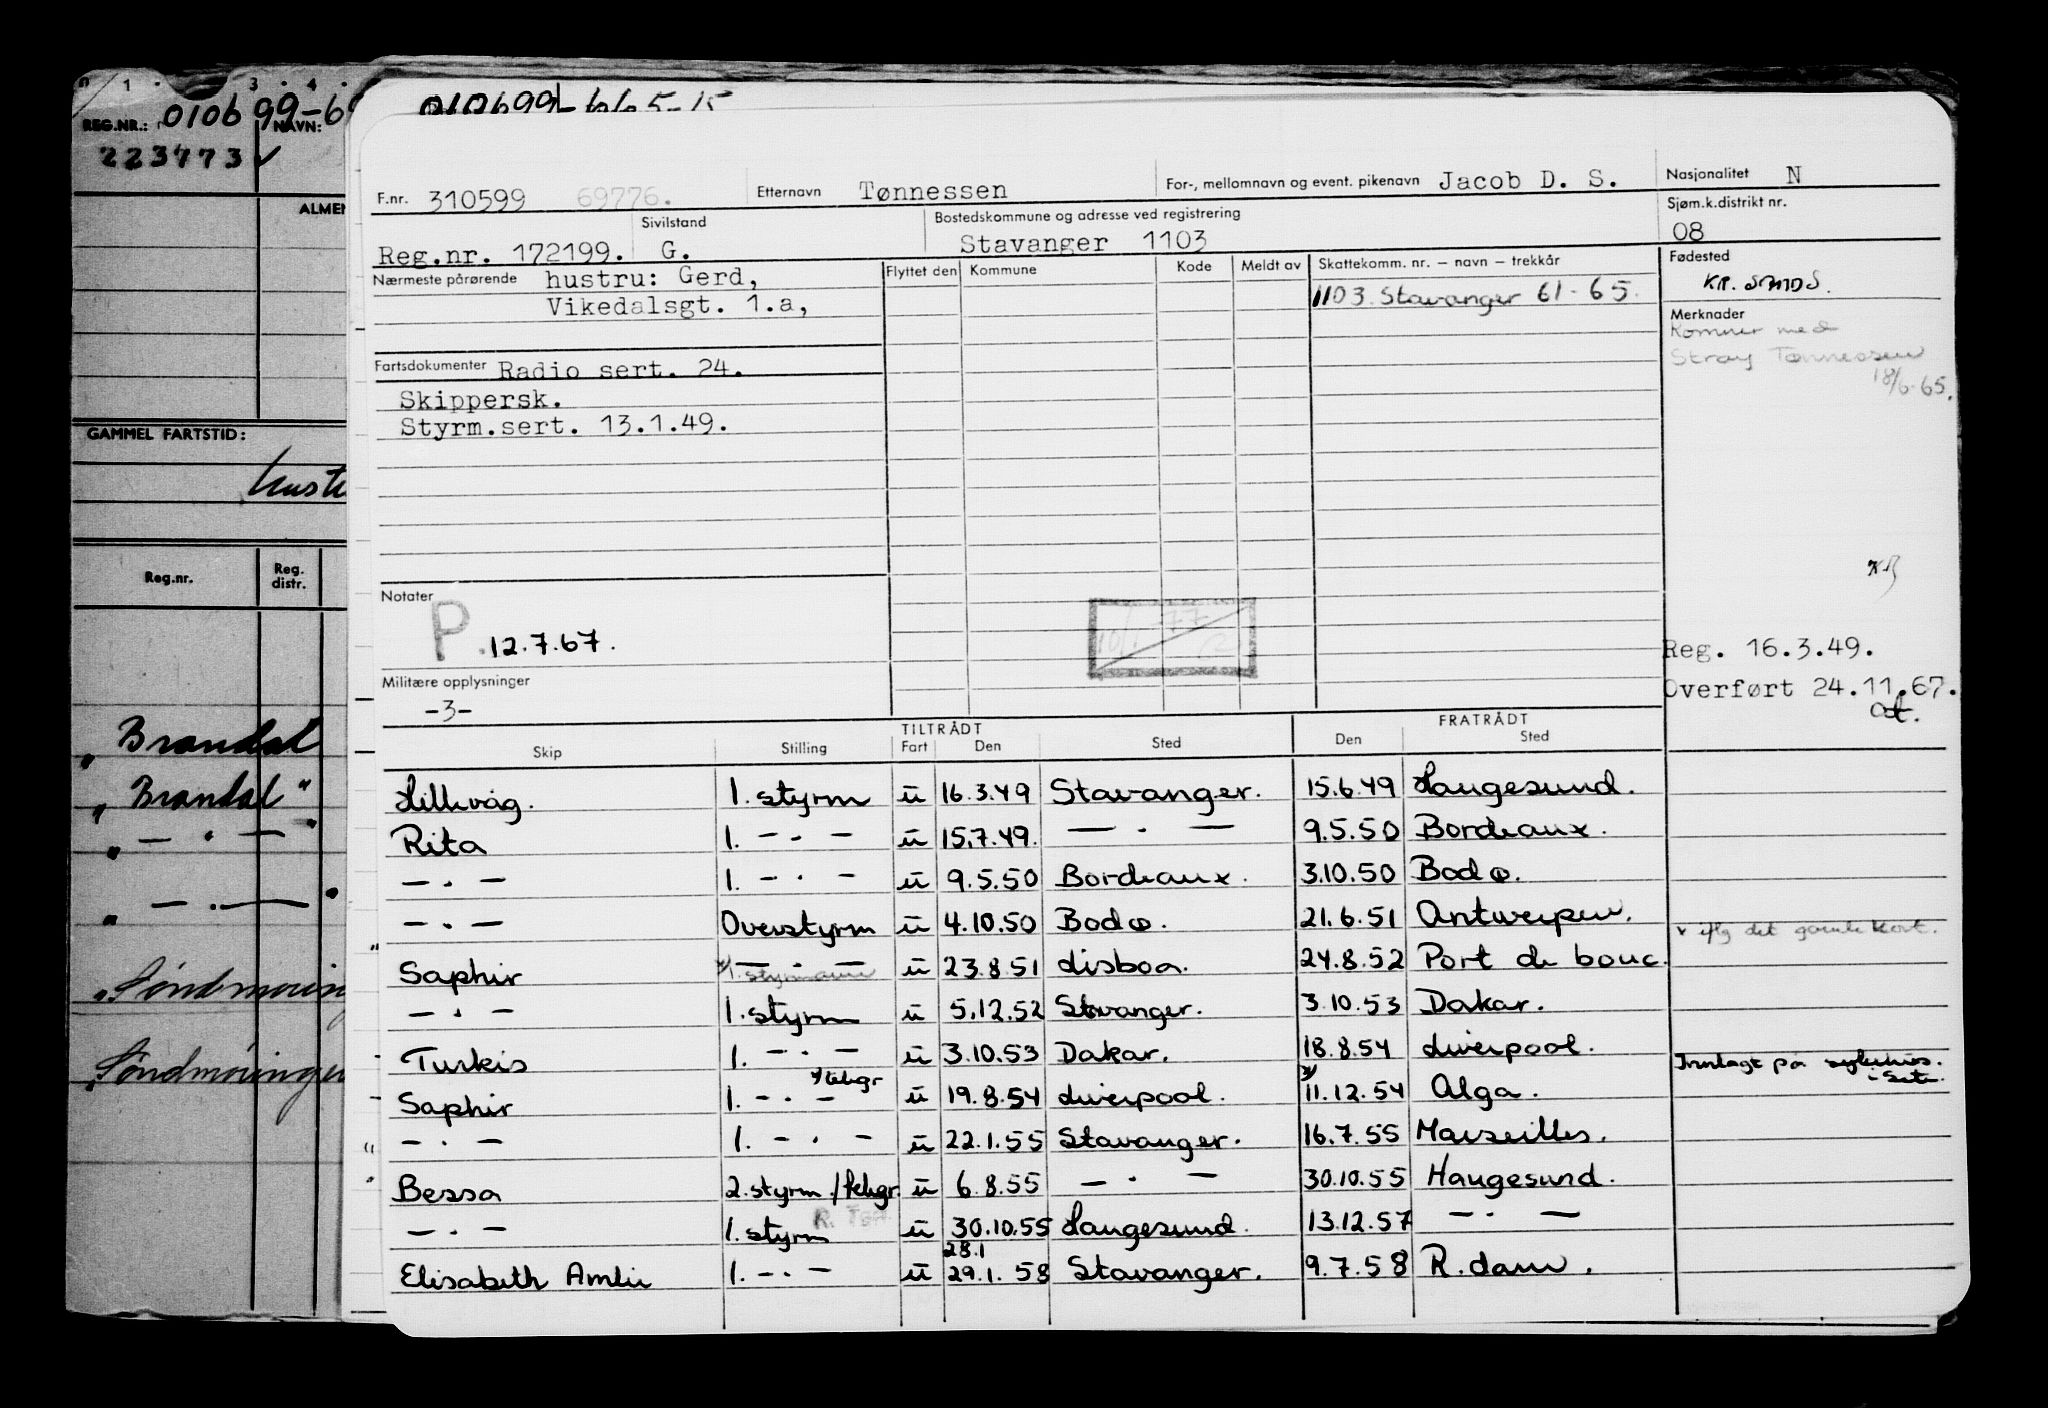 1 3 4
010699-6
REG.NR.: NAVN:
223773 ✓
ALMEN
GAMMEL FARTSTID:
Reg.nr. Reg. distr.
" Brandal
" Brandal "
" — " — "
" — . — "
010699-665-15
F.nr. 310599 69776. Etternavn Tønnessen For-, mellomnavn og event. pikenavn Jacob D. S. Nasjonalitet N
Sivilstand Bostedskommune og adresse ved registrering Sjøm.k.distrikt nr.
Reg.nr. 172199. G. Stavanger 1103 08
Nærmeste pårørende hustru: Gerd, Flyttet den Kommune Kode Meldt av Skattekomm. nr. – navn – trekkår Fødested
Vikedalsgt. 1.a, 1103 Stavanger 61-65. KR. SANDS.
Merknader
Kommer med
Stray Tønnessen
18/6-65.
Fartsdokumenter Radio sert. 24.
Skippersk.
Styrm.sert. 13.1.49.
Notater
P .12.7.67.
10/1 77
Reg. 16.3.49.
Militære opplysninger
-3-
Overført 24.11.67.
at.
TILTRÅDT FRATRÅDT
Skip Stilling Fart Den Sted Den Sted
Hillevåg. 1. styrm u 16.3.49 Stavanger. 15.6.49 Haugesund.
Rita 1. — . — u 15.7.49. — . — 9.5.50 Bordeaux.
— . — 1. — . — u 9.5.50 Bordeaux. 3.10.50 Bodø.
— . — Overstyrm u 4.10.50 Bodø. 21.6.51 Antwerpen.
x iflg det gamle kort.
Saphir x/ — . — 1. styrmann u 23.8.51 Lisboa. 24.8.52 Port de bouc.
— . — 1. styrm u 5.12.52 Stavanger. 3.10.53 Dakar.
Turkis 1. — . — u 3.10.53 Dakar. 18.8.54 Liverpool.
Saphir 1. — . — x/telegr u 19.8.54 Liverpool. x/ 11.12.54 Alga. Innlagt på sykehus. i Sete.
— . — 1. — . — u 22.1.55 Stavanger. 16.7.55 Marseilles.
Bessa 2. styrm/telegr. u 6.8.55 — . — 30.10.55 Haugesund.
— . — 1. styrm u 30.10.55 Haugesund. 13.12.57 — . —
28.1
Elisabeth Amlie 1. — . — u 29.1.58 Stavanger. 9.7.58 R.dam.